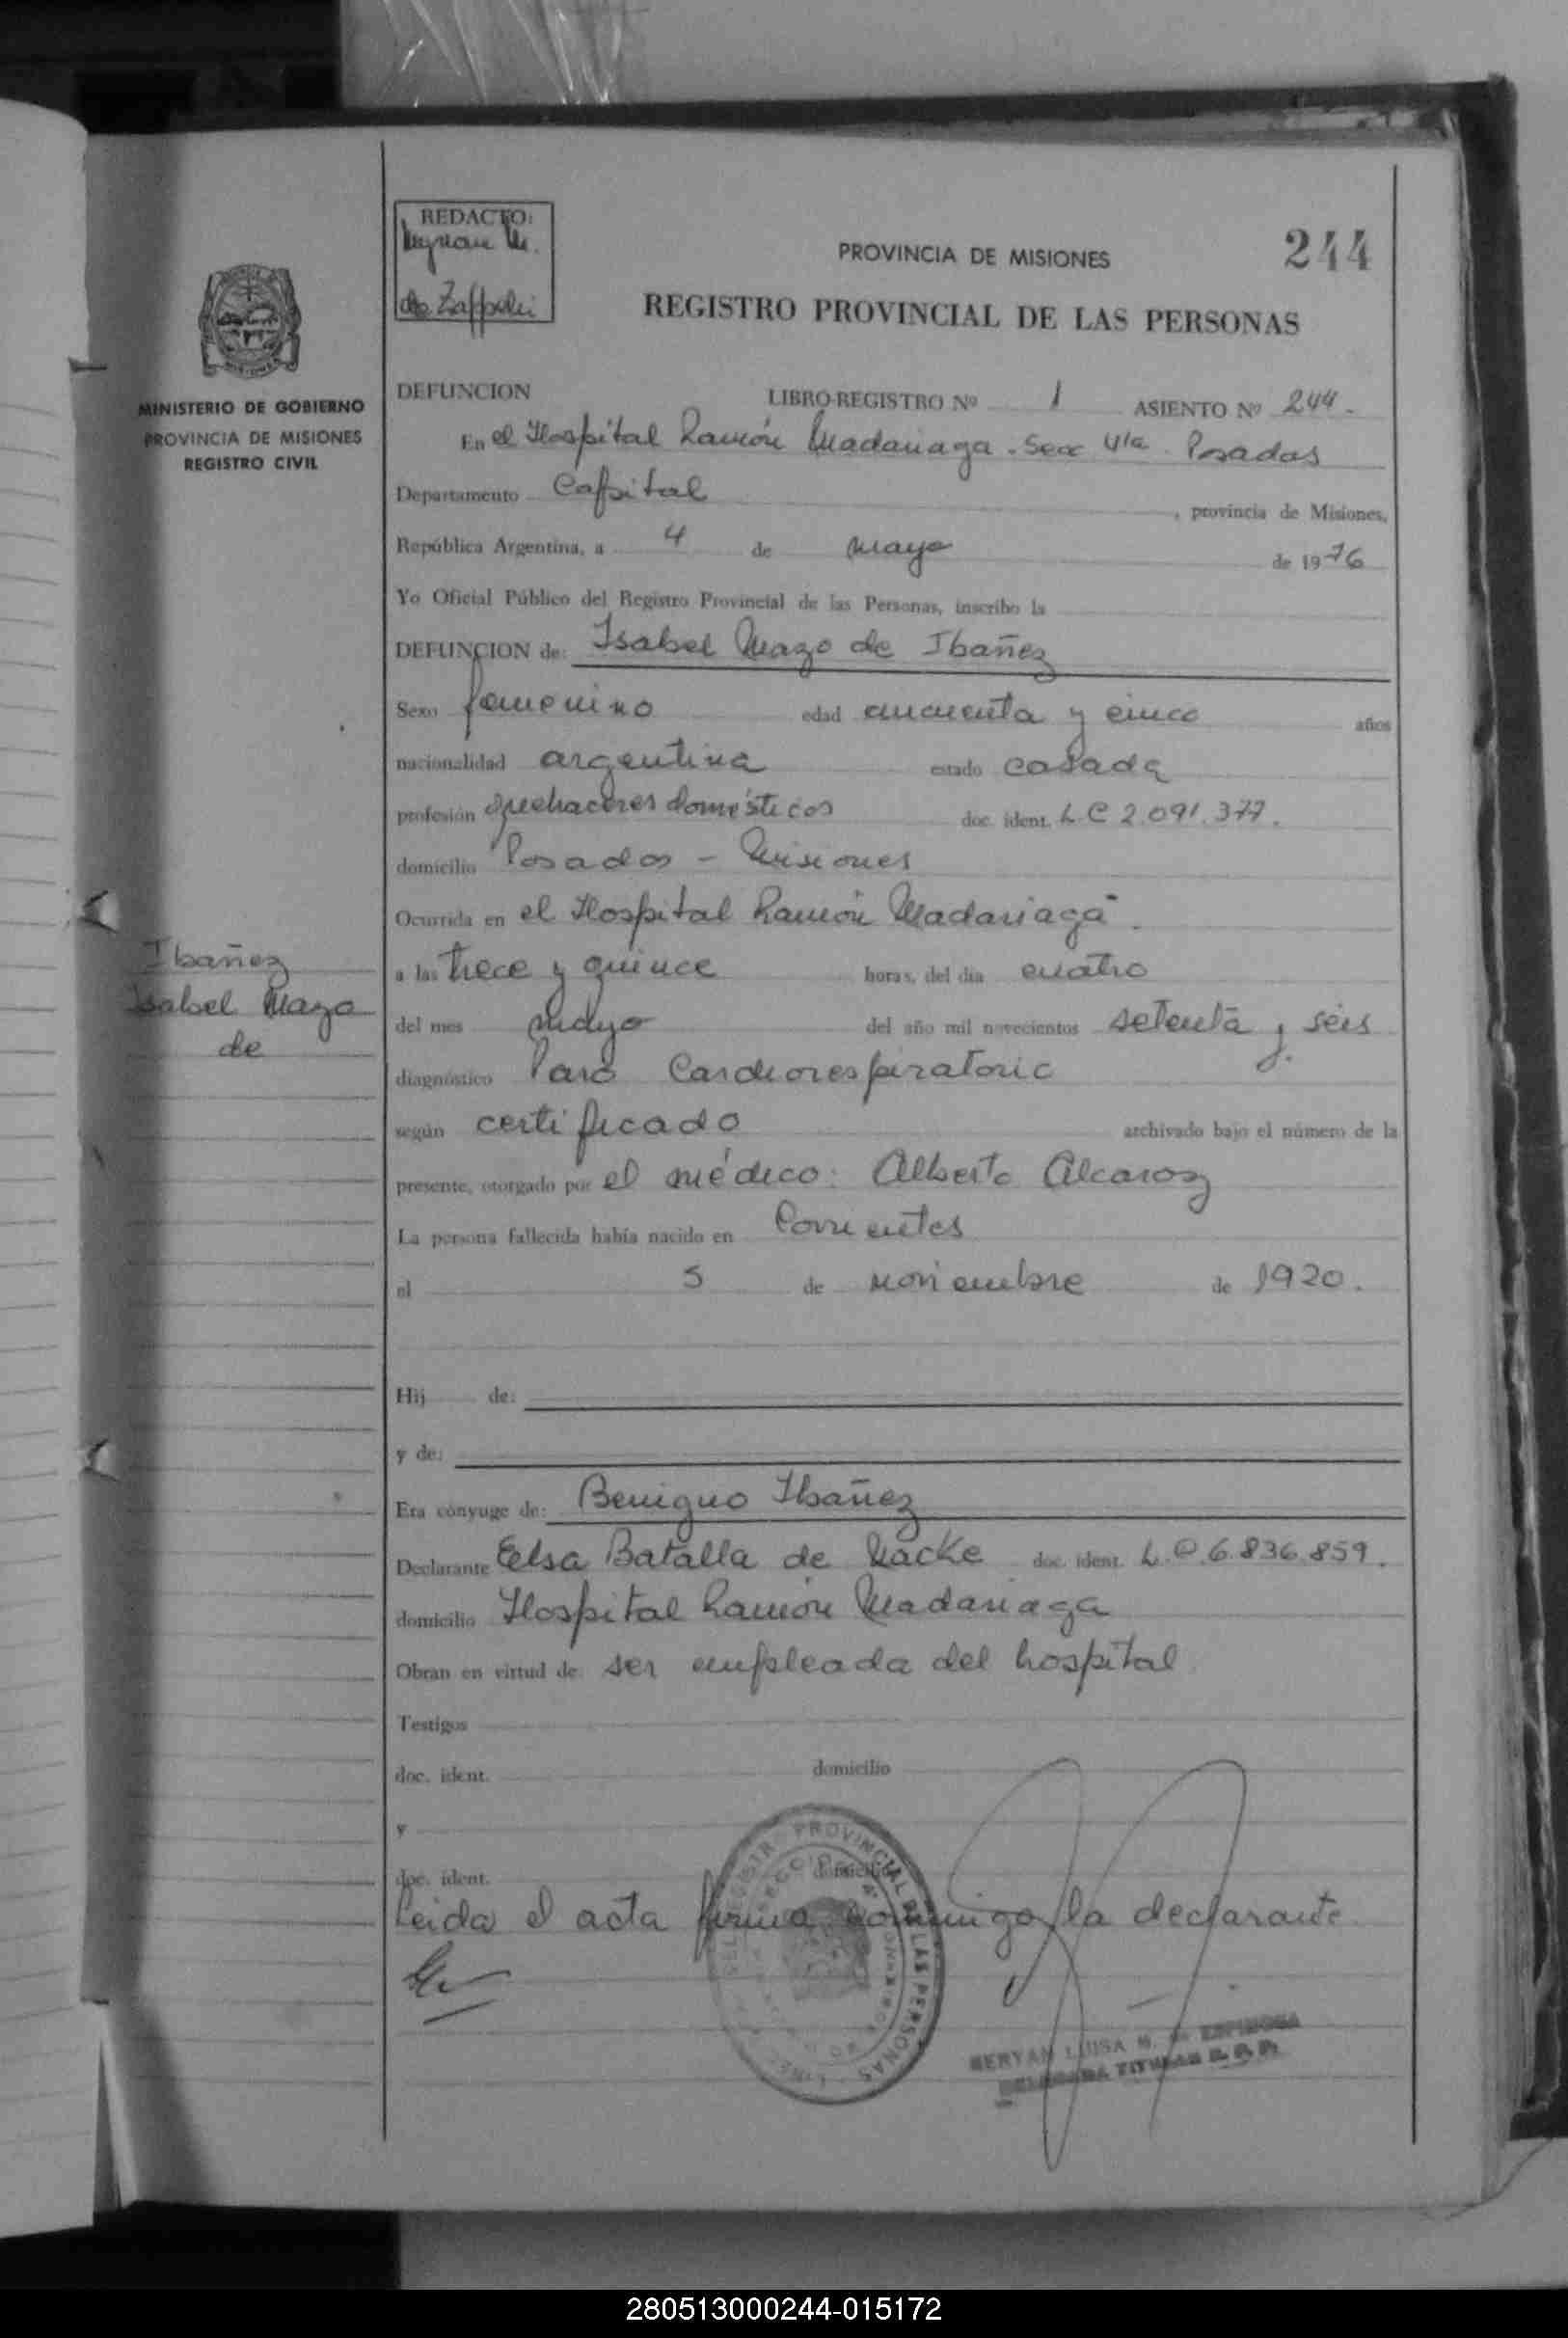 REDACTO:
de Zappelli
PROVINCIA DE MISIONES
244
REGISTRO PROVINCIAL DE LAS PERSONAS
MINISTERIO DE GOBIERNO
PROVINCIA DE MISIONES
REGISTRO CIVIL
DEFUNCION LIBRO-REGISTRO Nº 1 ASIENTO Nº 244.
En el Hospital Ramón Madariaga. Secc 4ta. Posadas
Departamento Capital, provincia de Misiones,
República Argentina, a 4 de mayo de 1976
Yo Oficial Público del Registro Provincial de las Personas, inscribo la
DEFUNCION de: Isabel Mazo de Ibañez
Sexo femenino edad cincuenta y cinco años
nacionalidad argentina estado casada
profesión quehaceres domésticos doc. ident. L C 2.091.377.
domicilio Posadas - Misiones
Ocurrida en el Hospital Ramón Madariaga.
a las trece y quince horas, del día cuatro
del mes mayo del año mil novecientos setenta y seis
diagnóstico Paro Cardiorespiratorio
según certificado archivado bajo el número de la
presente, otorgado por el médico: Alberto Alcaroz
La persona fallecida había nacido en Corrientes
el 5 de noviembre de 1920.
Hij de:
y de:
Era cónyuge de: Benigno Ibañez
Declarante Elsa Batalla de Macke doc. ident. L.C. 6.836.859.
domicilio Hospital Ramón Madariaga
Obran en virtud de ser empleada del hospital
Testigos
doc. ident. domicilio
y
doc. ident. domicilio
Leida el acta firma conmigo la declarante
Ibañez
Isabel Mazo
de
PROVINCIAL DE LAS PERSONAS
MERYAN LUISA M. de ESPINOSA
DELEGADA TITULAR R. P. P.
280513000244-015172